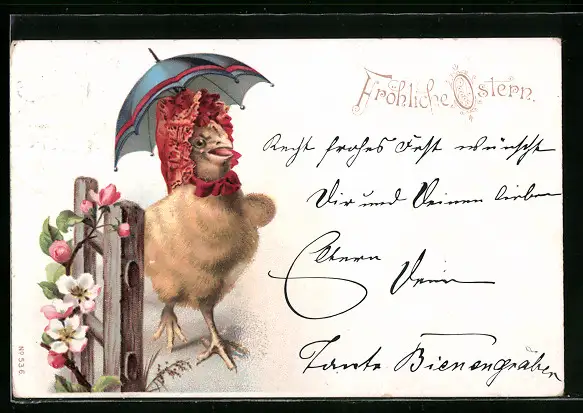 Fröhliche Ostern.
Recht frohes Fest wünscht
Dir und Deinen lieben
Eltern Dein
Tante Bienengräben
No 536